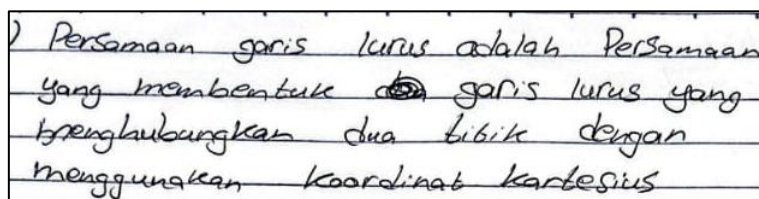 ) Persamaan garis lurus adalah Persamaan
yang membentuk garis lurus yang
menghubungkan dua titik dengan
menggunakan koordinat kartesius